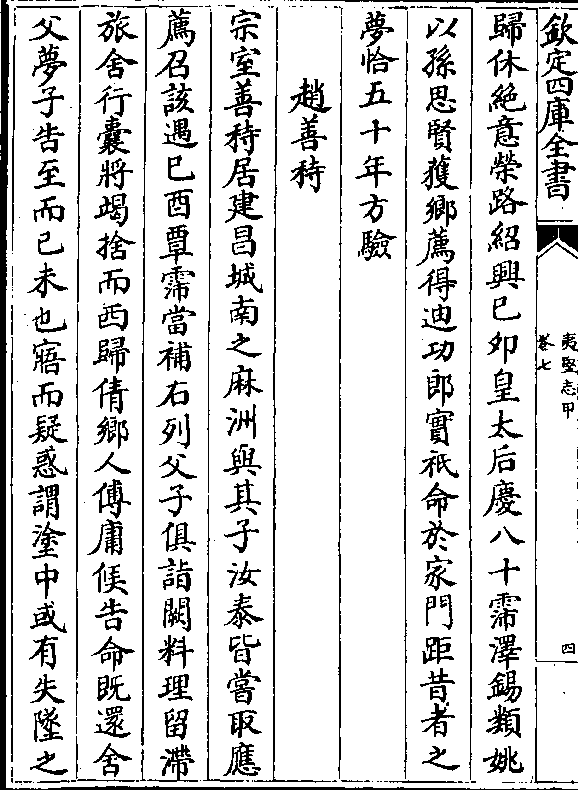 欽定四庫全書
夷堅志甲
卷七
四
歸休絶意榮路紹興已夘皇太后慶八十霈澤錫類姚
以孫思賢獲鄉薦得迪功郎實祇命於家門距昔者之
夢恰五十年方驗
趙善待
宗室善待居建昌城南之麻洲與其子汝泰皆嘗取應
薦召該遇已酉覃霈當補右列父子俱詣闕料理留滯
旅舍行囊將竭捨而西歸倩鄉人傅庸俟告命既還舍
父夢子告至而已未也寤而疑惑謂塗中或有失墜之